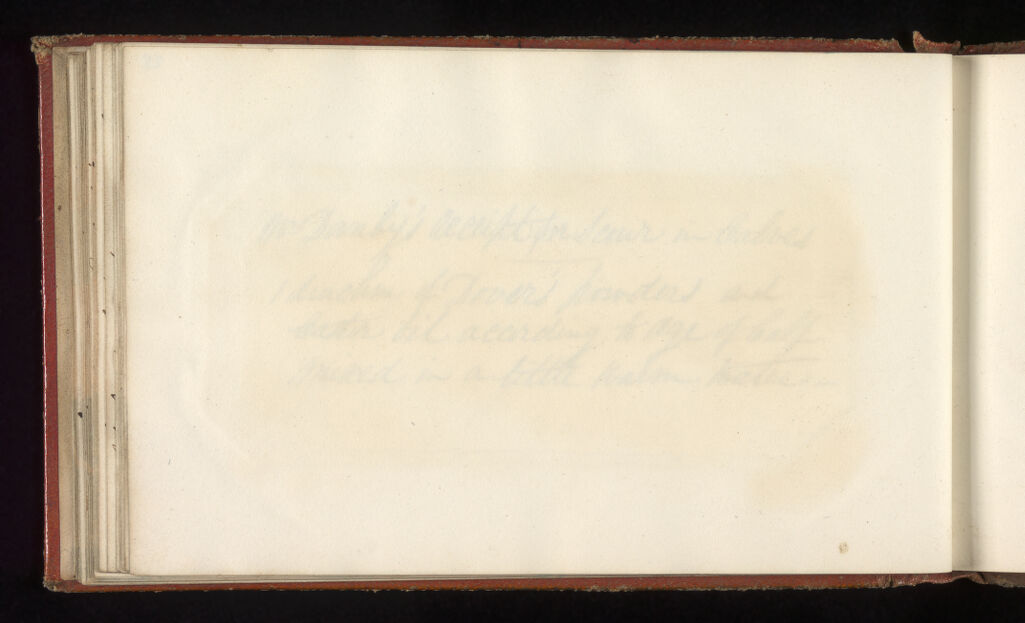 Mr Danby's Receipt for Scour in Calves
1 drachm of Dover's powders and
castor oil according to age of calf
mixed in a little warm water